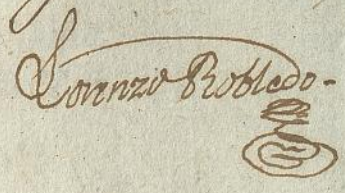 Lorenzo Robledo